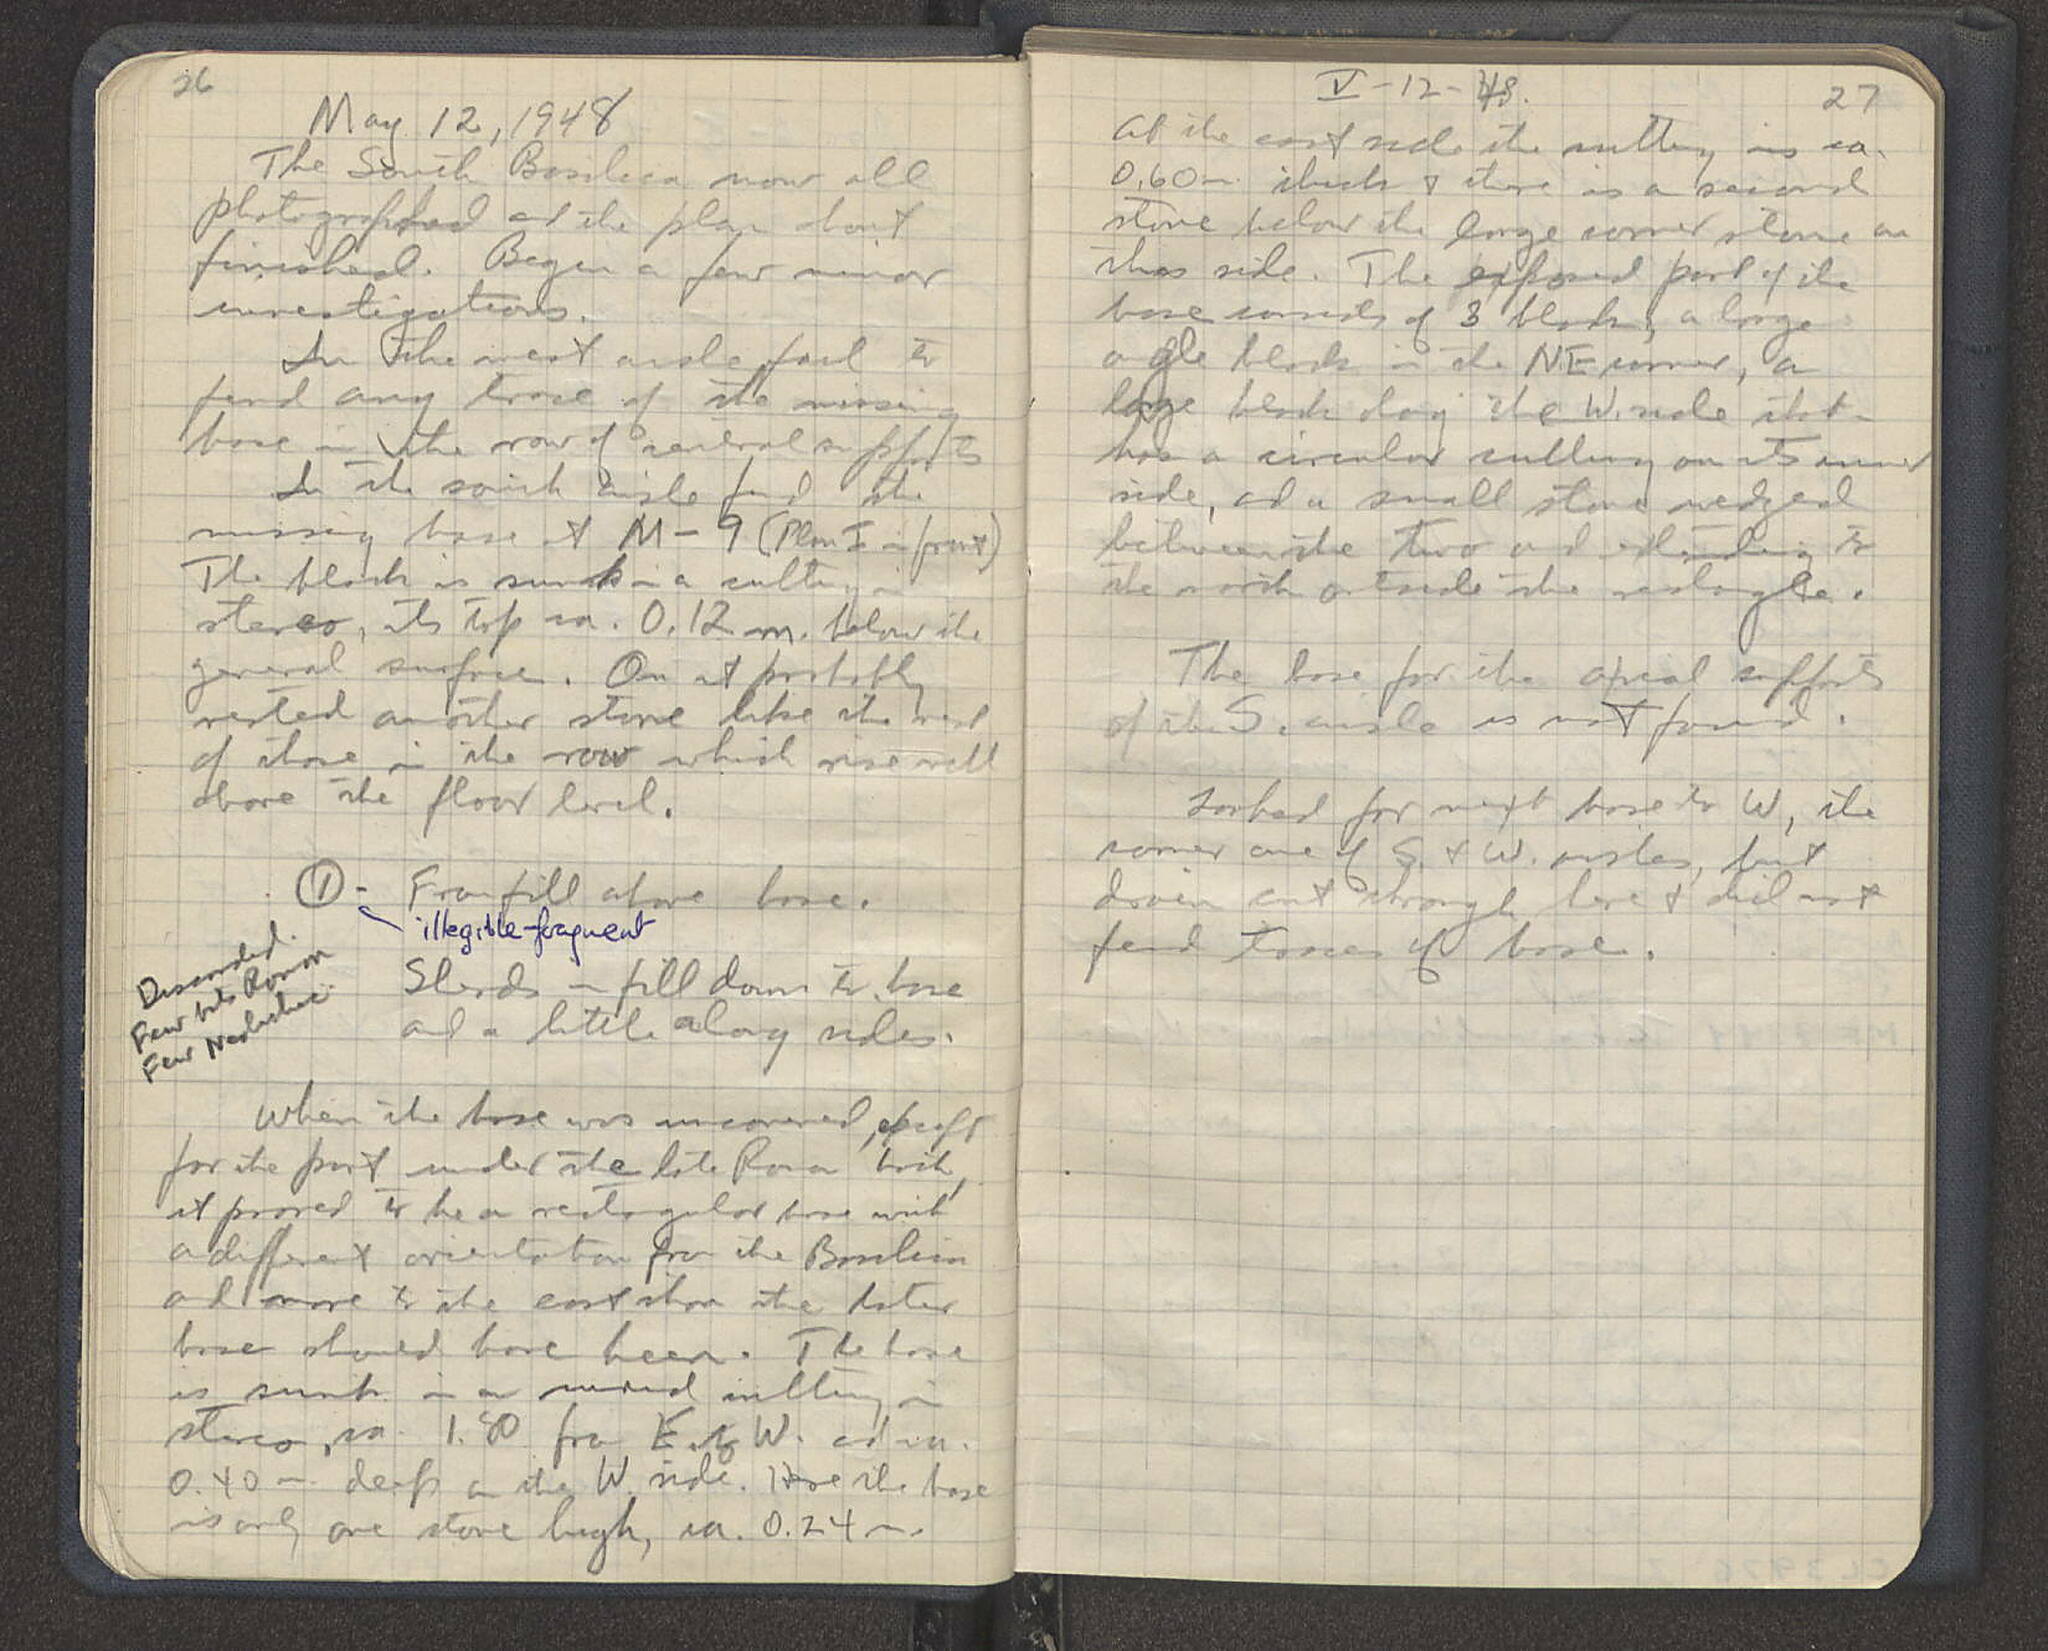 26
May 12, 1948
The South Basilica now all
photographed and the plan about
finished. Began a few minor
investigations.
In the west aisle fail to
find any trace of the missing
base in the row of central supports
In the south aisle find the
missing base at M-9 (Plan I in front)
The block is sunk in a cutting in
stereo, its top ca. 0.12 m. below the
general surface. On it probably
rested another stone like the rest
of those in the row which rise well
above the floor level.
① - From fill above base.
illegible fragment
Discarded
Few bits Roman
Few Neolithic
Sherds in fill down to base
and a little along sides.
When the base was uncovered, except
for the part under the late Roman
it proved to be a rectangular base with
a different orientation from the Basilica
and more to the east than the later
base should have been. The base
is sunk in a cutting in
stereo, ca. 1.80 from E. to W. and ca.
0.40 m deep on the W. side. Here the base
is only one stone high, ca. 0.24 m.
V-12-48.
27
At the east side the cutting is ca.
0.60 m. thick & there is a second
stone below the large corner stone on
this side. The exposed part of the
base consists of 3 blocks, a large
angle block in the NE corner, a
large block along the W. side that
has a circular cutting on its inner
side, and a small stone wedged
between the two and extending to
the north outside the rectangle.
The base for the axial supports
of the S. aisle is not found.
Looked for next base to W, the
corner one of S. & W. aisles, but
drain cut through here & did not
find traces of base.